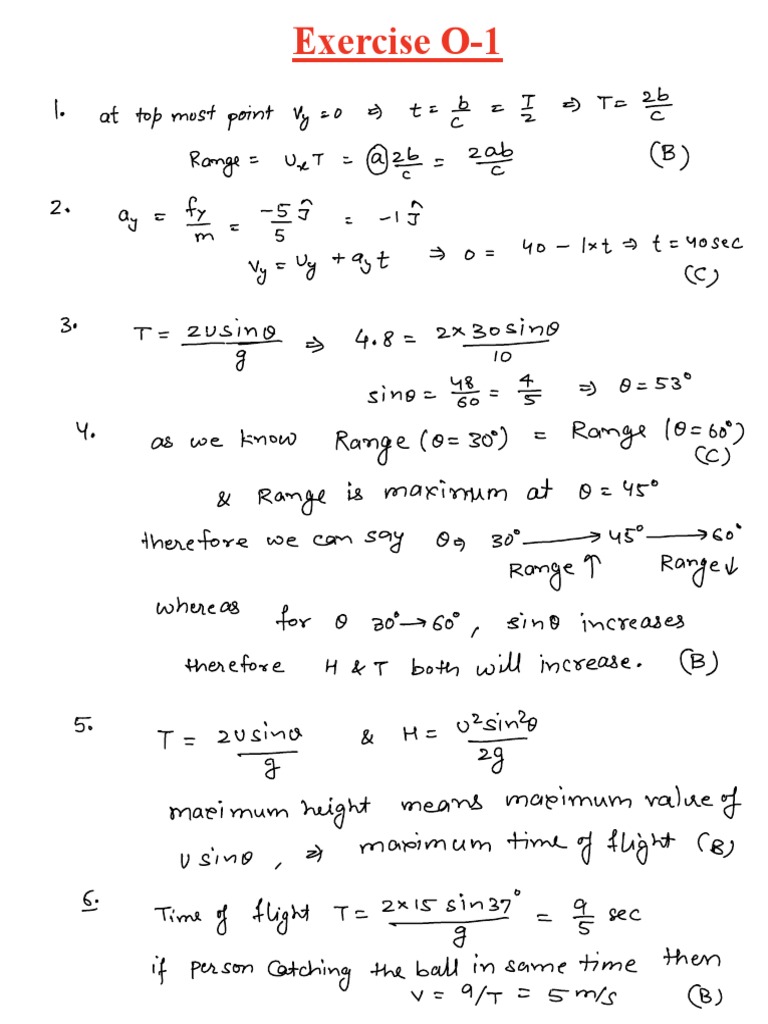 Exercise O-1
1. at top most point Vy = 0 ⇒ t = b/c = T/2 ⇒ T = 2b/c
Range = UxT = a 2b/c = 2ab/c (B)
2. ay = fy/m = -5ĵ/5 = -1ĵ
Vy = Uy + ayt ⇒ 0 = 40 - 1×t ⇒ t = 40sec
(C)
3. T = 2usinθ/g ⇒ 4.8 = 2×30sinθ/10
sinθ = 48/60 = 4/5 ⇒ θ = 53°
(C)
4. as we know Range (θ = 30°) = Range (θ = 60°)
& Range is maximum at θ = 45°
therefore we can say θ⇒ 30° → 45° → 60°
Range ↑ Range ↓
whereas for θ 30° → 60°, sinθ increases
therefore H & T both will increase. (B)
5. T = 2usinθ/g & H = u²sin²θ/2g
maximum height means maximum value of
u sinθ, ⇒ maximum time of flight (B)
6. Time of flight T = 2×15 sin37°/g = 9/5 sec
if person catching the ball in same time then
V = 9/T = 5 m/s (B)